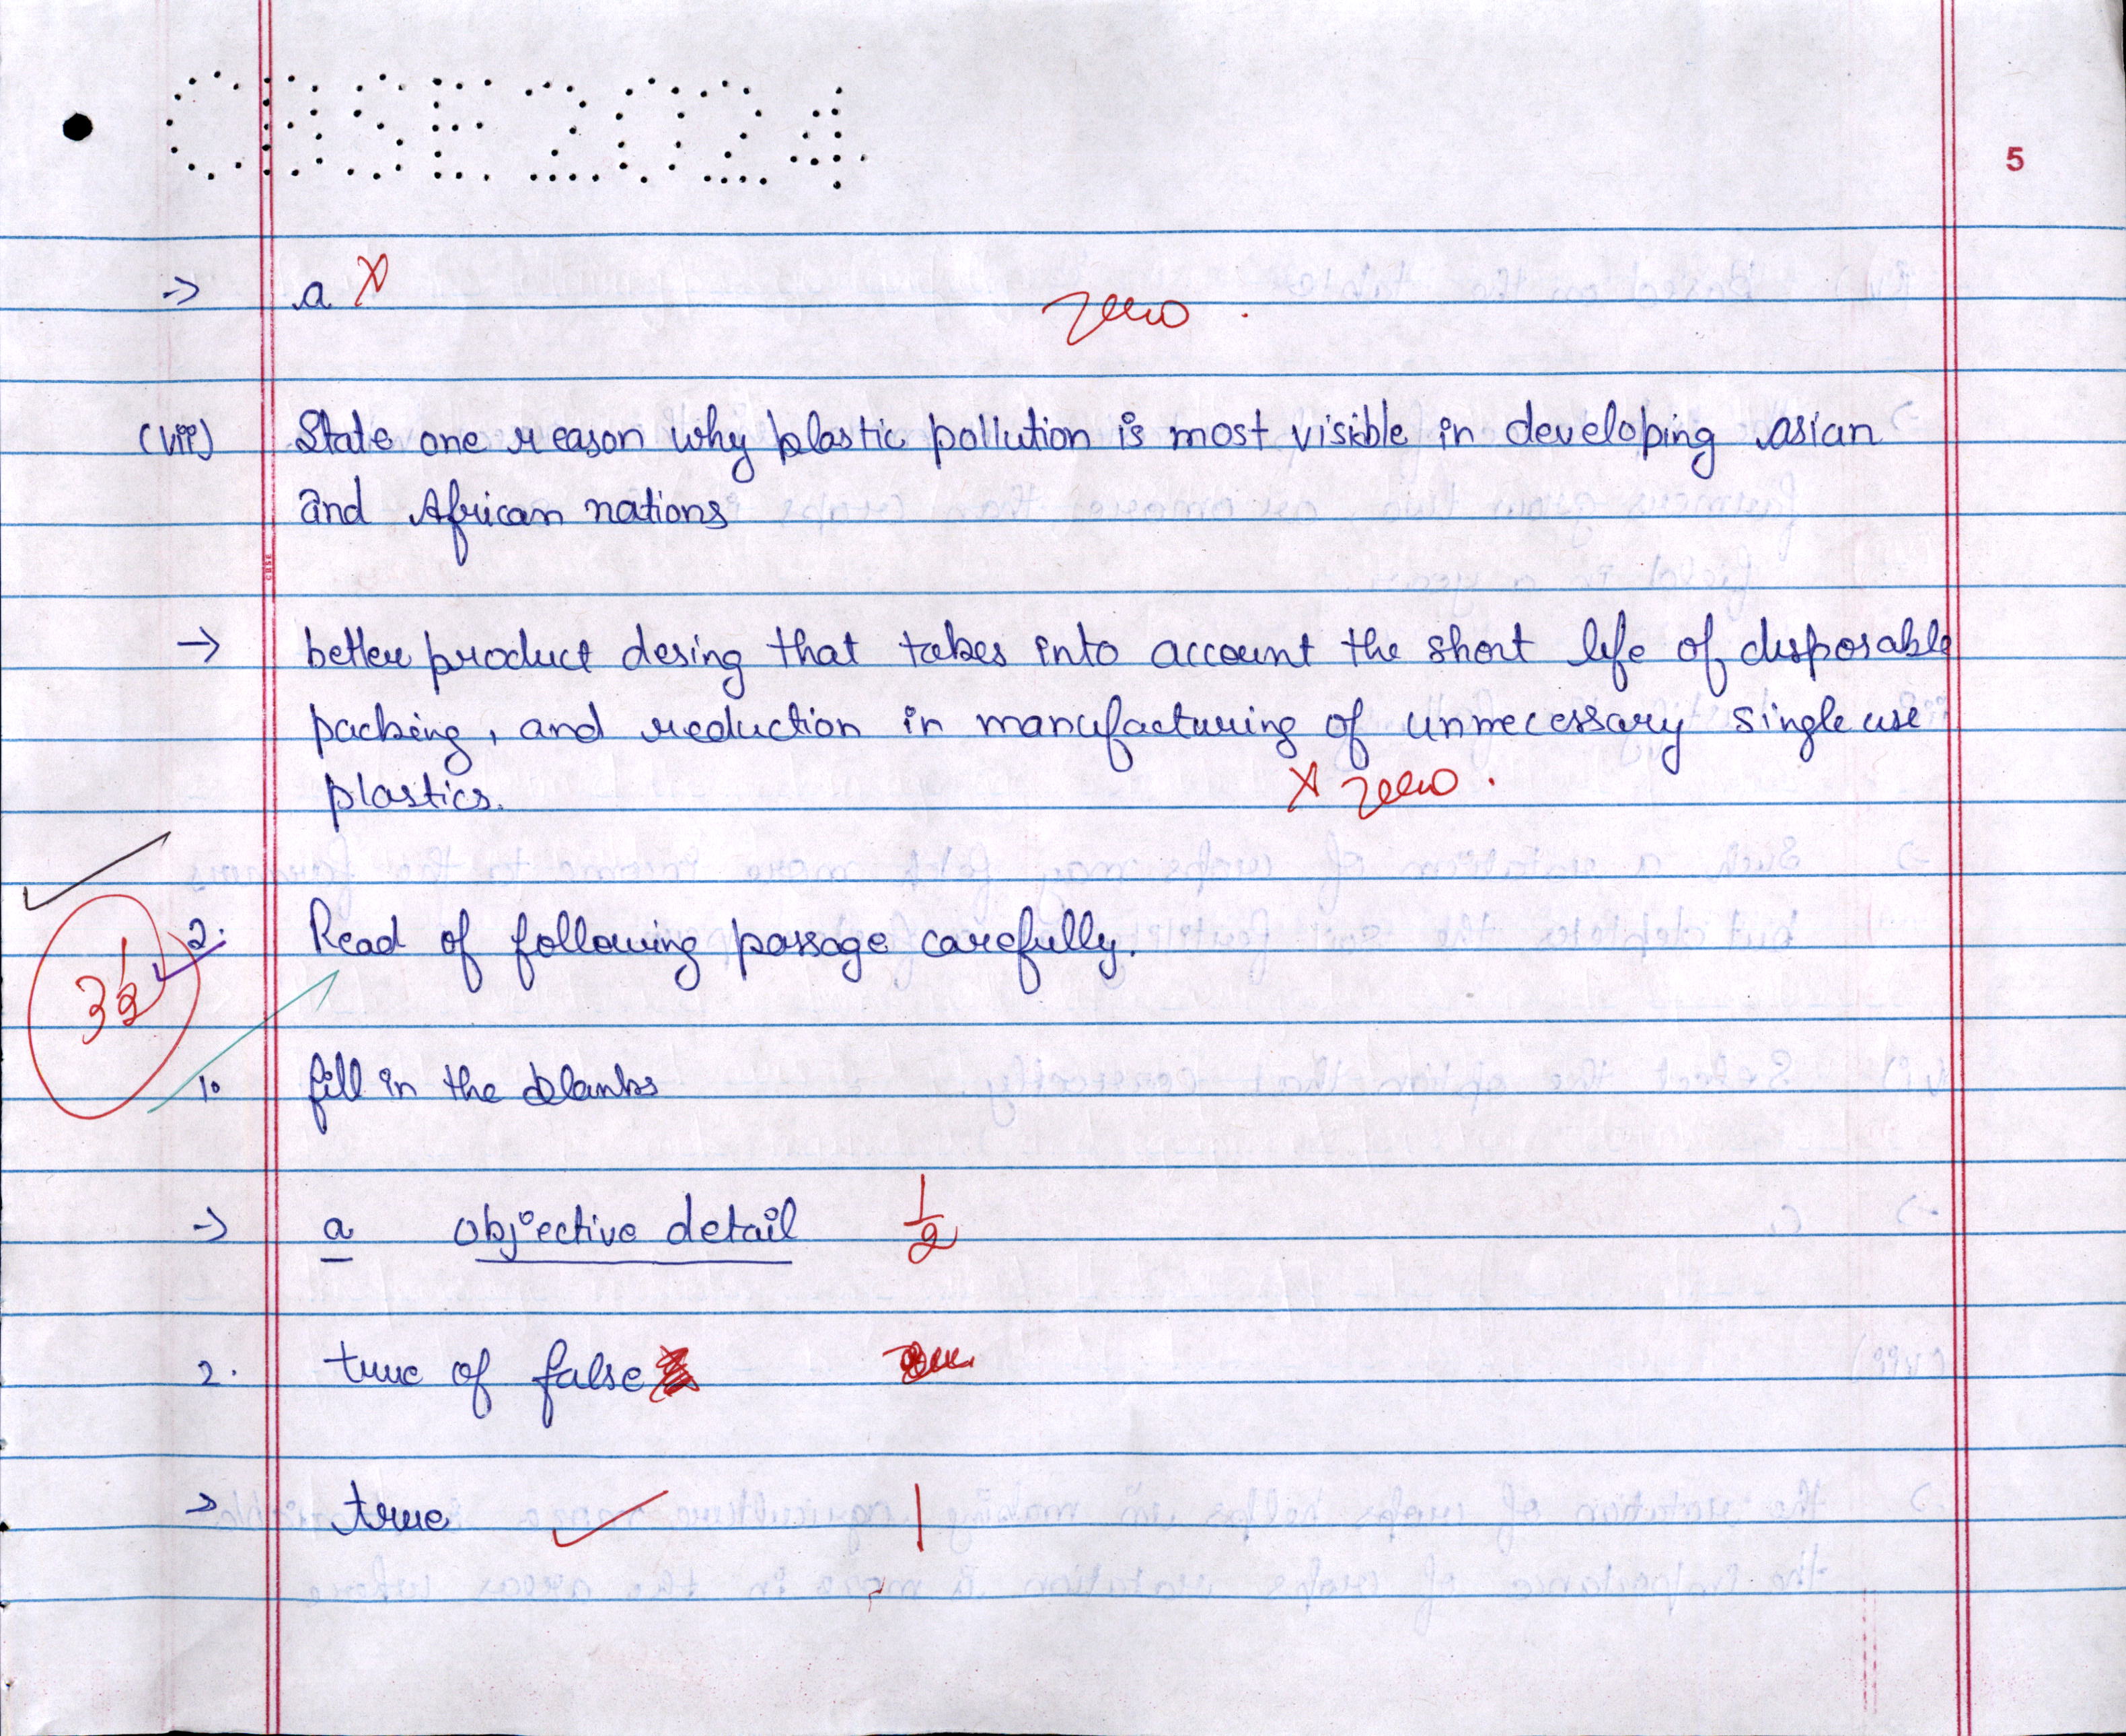 CBSE 2024
5
→ a X
zero .
(vii) State one reason why plastic pollution is most visible in developing asian
and African nations
→ better product desing that takes into account the short life of disporable
packing, and reduction in manufacturing of unnecessary single use
plastics.
X zero .
3 1/2
2. Read of following passage carefully.
1. fill in the blanks
→ a objective detail 1/2
2. true of false
→ true ✓ 1